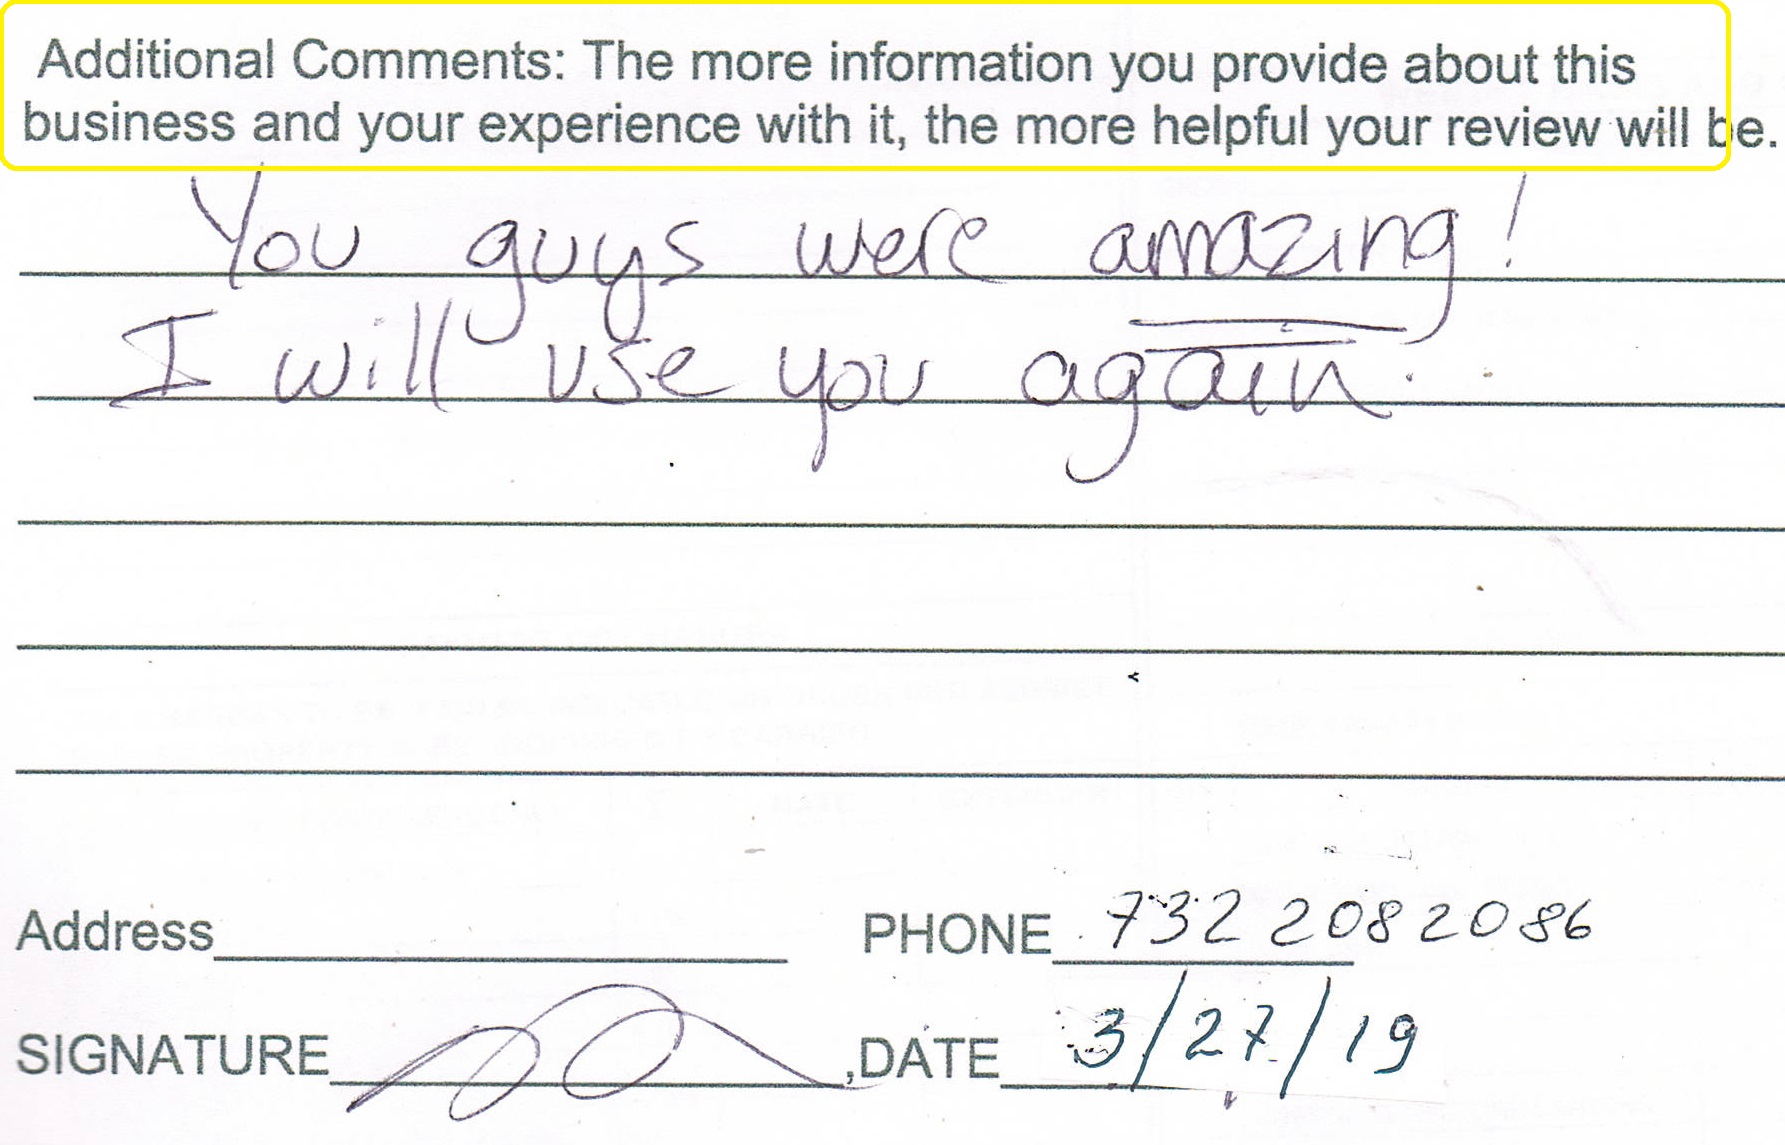 Additional Comments: The more information you provide about this
business and your experience with it, the more helpful your review will be.
You guys were amazing!
I will use you again.
Address PHONE 732 208 2086
SIGNATURE ,DATE 3/27/19